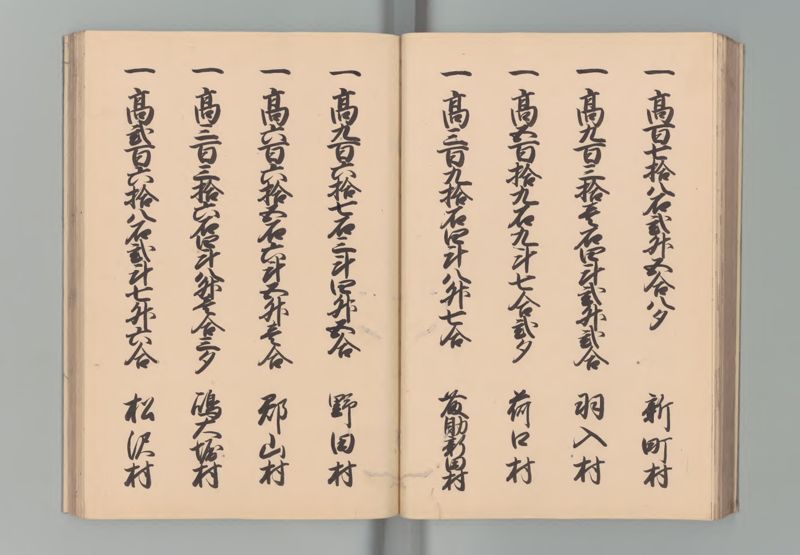 一 高百七拾八石弐升五合八夕 新町村
一 高九百三拾壱石四斗弐升弐合 羽入村
一 高五百拾九石九斗七合弐夕 荷口村
一 高三百九拾石四斗八升七合 助新田村
一 高九百六拾七石三斗四升五合 野田村
一 高六百六拾五石六斗五升壱合 郡山村
一 高三百三拾六石四斗八升壱合三夕 鴻大堀村
一 高弐百六拾八石弐斗七升六合 松沢村